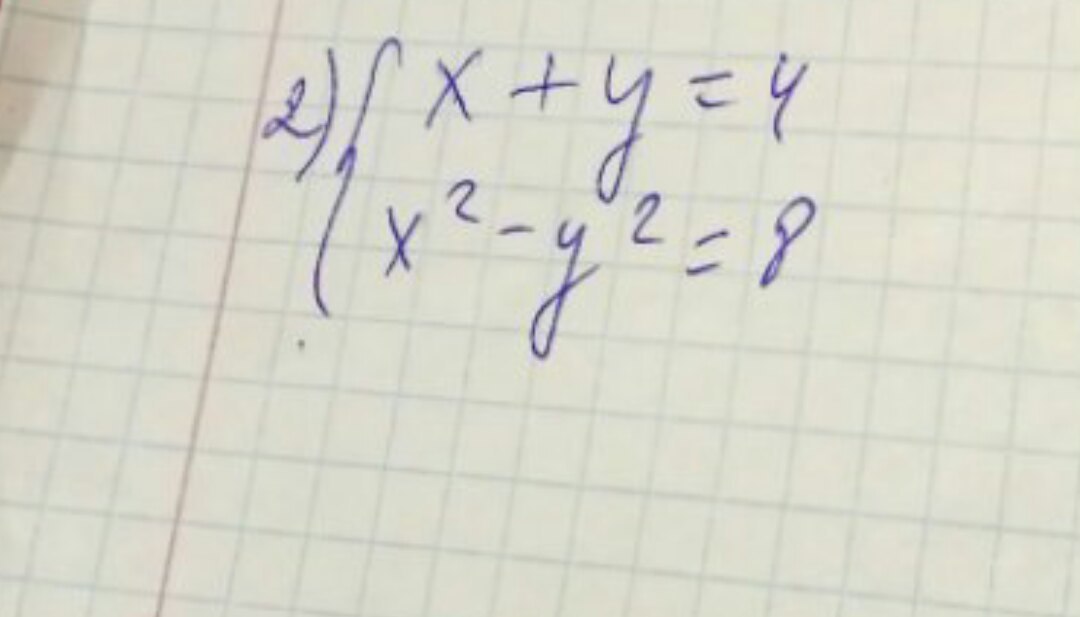 2) { x + y = 4
x² - y² = 8